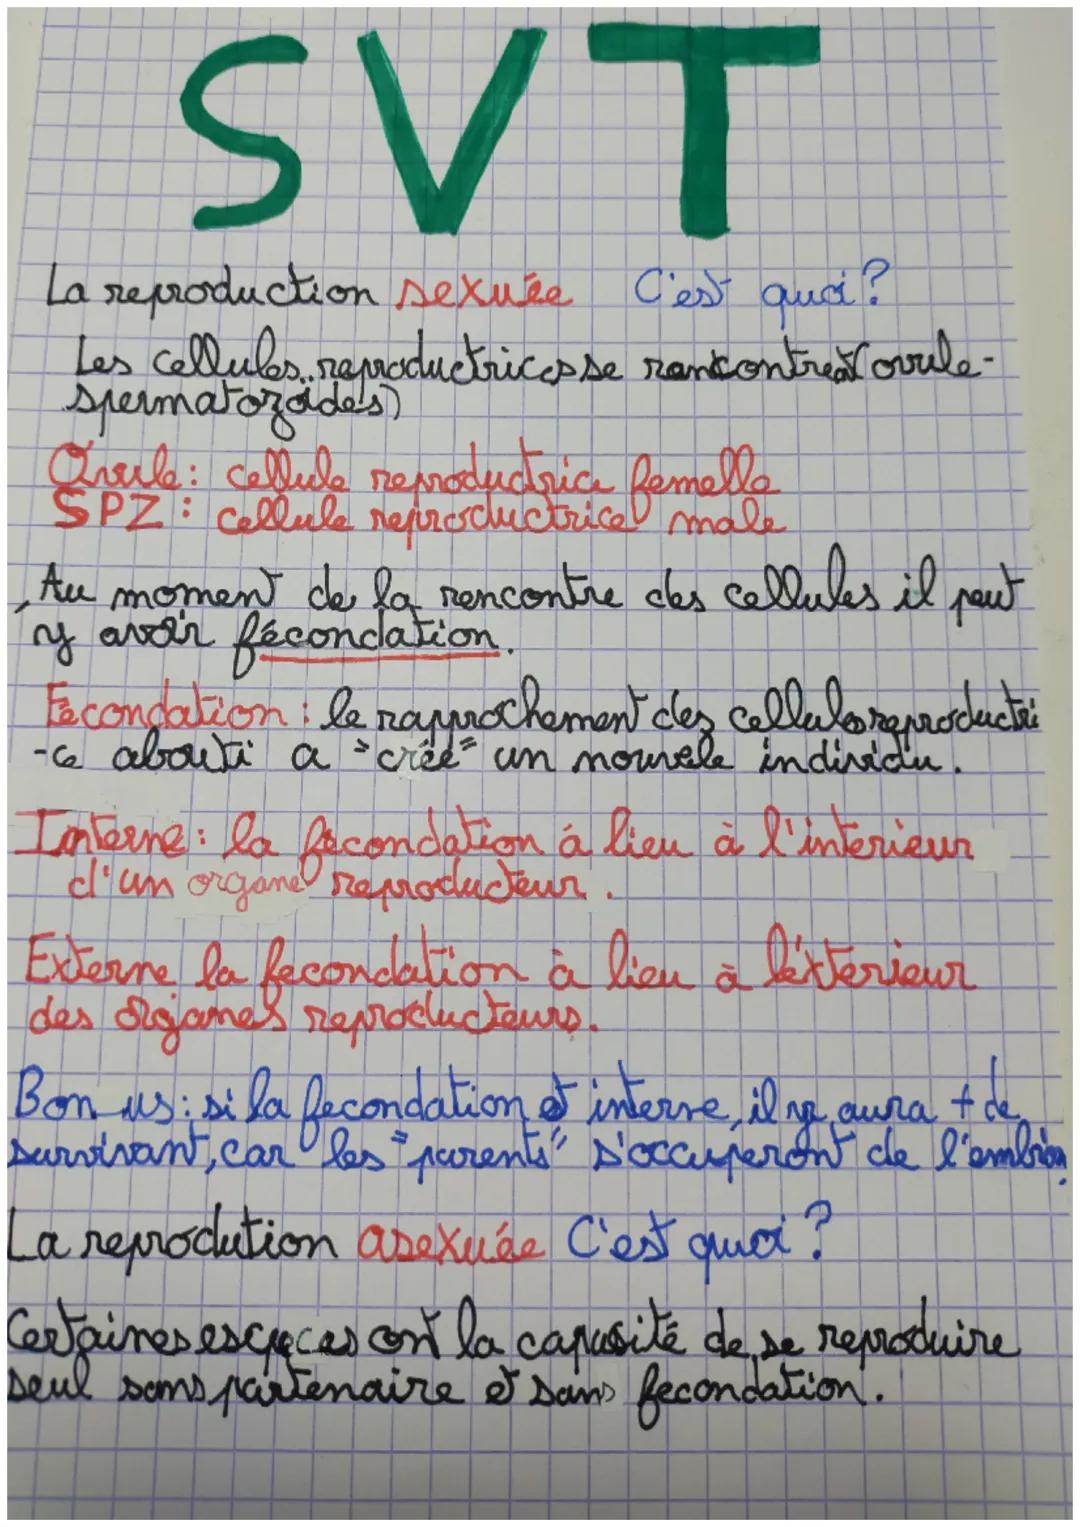 SVT
La reproduction sexuée C'est quoi?
Les cellules reproductrices se rencontrent (ovule-
spermatozoïdes)
Ovule: cellule reproductrice femelle
SPZ: cellule reproductrice male
Au moment de la rencontre des cellules il peut
y avoir fécondation.
Fecondation: le rapprochement des cellules reproductri
-ce abouti a "crée" un nouvele individu.
Interne: la fecondation á lieu à l'interieur
d'un organe reproducteur.
Externe la fecondation à lieu à l'éxterieur
des organes reproducteurs.
Bon us: si la fecondation et interne, il y aura + de
survivant, car les "parents" s'occuperont de l'embrion
La reprodution asexuée C'est quoi?
Certaines especes ont la capasité de se reproduire
seul sans partenaire et sans fecondation.